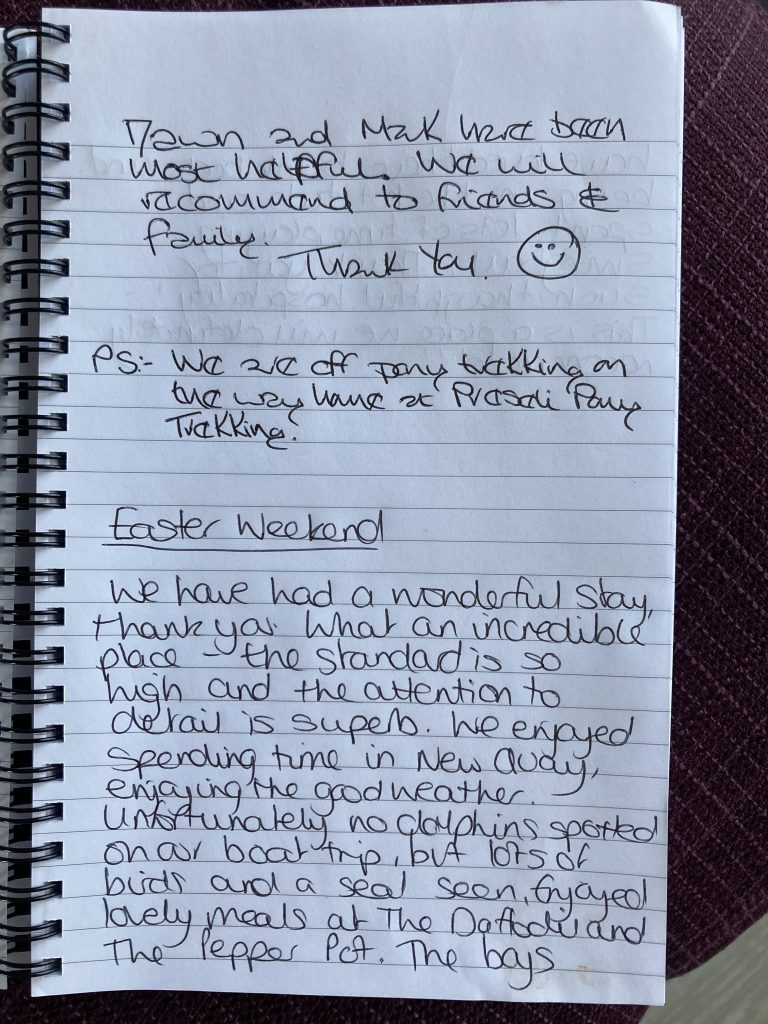 Dawn and Mark have been
most helpful. We will
recommend to friends &
family.
Thank You. ☺
PS:- We are off pony trekking on
the way home at Preseli Pony
Trekking.
Easter Weekend
We have had a wonderful stay,
thank you. What an incredible
place - the standad is so
high and the attention to
detail is superb. We enjoyed
spending time in New Quay,
enjoying the good weather.
Unfortunately no dolphins spotted
on our boat trip, but lots of
birds and a seal seen. Enjoyed
lovely meals at The Daffodil and
The Pepper Pot. The boys